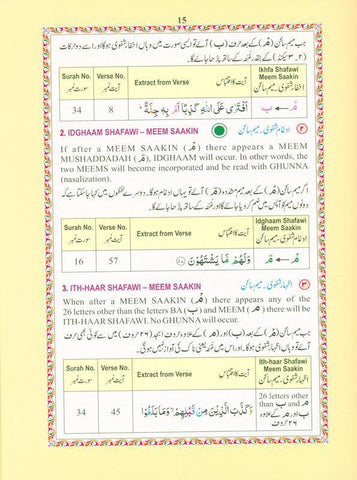 15
جب میم ساکن (مْ) کے بعد حرف (ب) آئے تو ایسی صورت میں وہاں اخفا شفوی ہوگا اور اسے دو حرکات
(۲-۳ سیکنڈ) کے غنہ کے ساتھ پڑھا جائے گا۔
Surah No. Verse No. Extract from Verse Ikhfa Shafawi
سورت نمبر آیت نمبر آیت کا اقتباس Meem Saakin
اخفا شفوی۔ میم ساکن
34 8 أَفْتَرَىٰ عَلَى اللّٰهِ كَذِبًا أَم بِهِ جِنَّةٌ مْ ← ب
2. IDGHAAM SHAFAWI – MEEM SAAKIN ادغام شفوی۔ میم ساکن ۲
If after a MEEM SAAKIN (مْ) there appears a MEEM
MUSHADDADAH (مّ), IDGHAAM will occur. In other words, the
two MEEMS will become incorporated and be read with GHUNNA
(nasalization).
اگر میم ساکن (مْ) کے بعد میم مشدد (مّ) آئے تو یہاں ادغام ہوگا۔ دوسرے لفظوں میں کہا جا سکتا ہے کہ
دونوں میم کو آپس میں ضم کر دیا جائے گا اور غنہ کے ساتھ پڑھا جائے گا۔
Surah No. Verse No. Extract from Verse Idghaam Shafawi
سورت نمبر آیت نمبر آیت کا اقتباس Meem Saakin
ادغام شفوی۔ میم ساکن
16 57 وَلَهُم مَّا يَشْتَهُونَ مْ ← مّ
3. ITH-HAAR SHAFAWI – MEEM SAAKIN اظہار شفوی۔ میم ساکن ۳
When after a MEEM SAAKIN (مْ) there appears any of the
26 letters other than the letters BA (ب) and MEEM (م) there will be
ITH-HAAR SHAFAWI. No GHUNNA will occur.
جب میم ساکن (مْ) کے بعد (ب) اور (م) کے علاوہ حروف ابجد (۲۶ حروف) میں سے کوئی بھی حرف
آئے تو وہاں اظہار شفوی ہوگا۔ اور اس میں غنہ یعنی ناک کی آواز نہیں ہوگی۔
Surah No. Verse No. Extract from Verse Ith-haar Shafawi
سورت نمبر آیت نمبر آیت کا اقتباس Meem Saakin
اظہار شفوی۔ میم ساکن
34 45 وَكَذَّبَ الَّذِينَ مِن قَبْلِهِمْ وَمَا بَلَغُوا 26 letters other
than ب and م
ب اور م کے علاوہ
۲۶ حروف